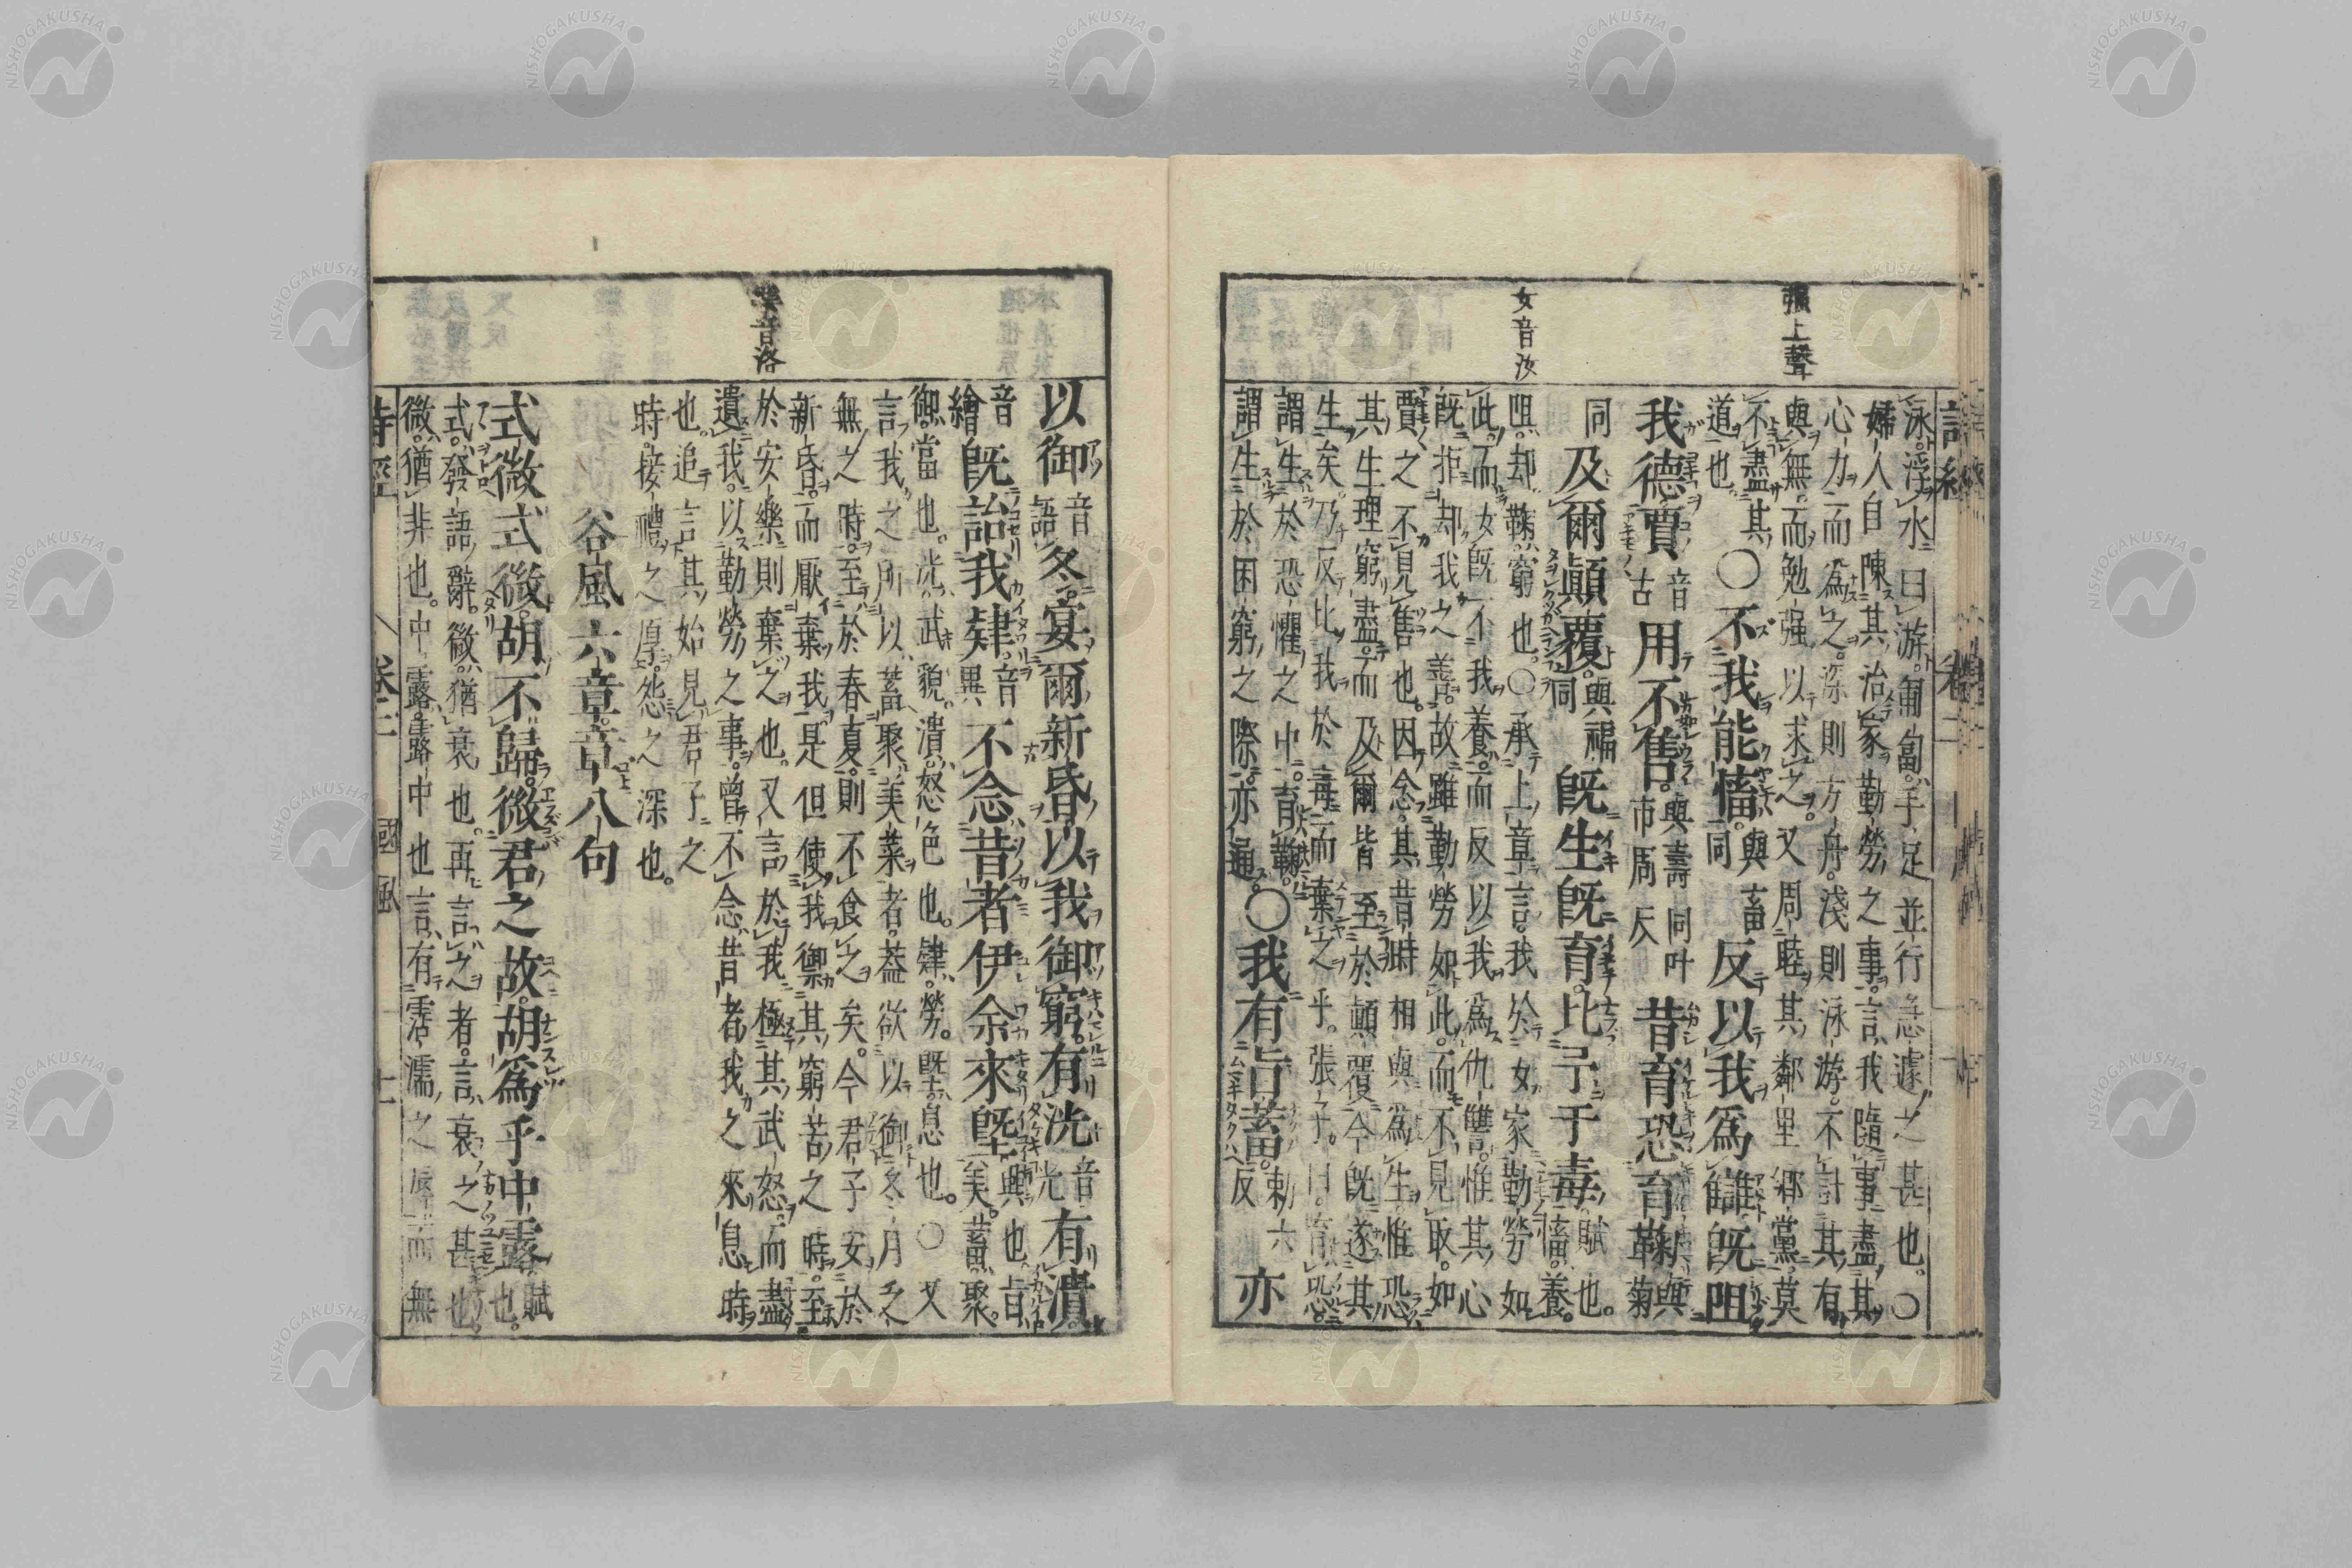 強上聲
女音汝
泳浮水曰游匍匐手足並行急遽之甚也○
婦人自陳其治家勤勞之事言我隨事盡其
心力而為之深則方舟淺則泳游不計其有
與無而勉强以求之又周睦其鄰里鄉黨莫
不盡其
道也○不我能慉與畜同反以我為讎既阻
我德賈音古用不售市周反與壽同叶昔育恐育鞫與菊
同及爾顛覆與福同既生既育比予于毒賦也慉養
阻却鞫窮也○承上章言我於女家勤勞如
此而女既不我養而反以我為仇讐惟其心
既拒却我之善故雖勤勞如此而不見取如
賈之不見售也因念其昔時相與為生惟恐
其生理窮盡而及爾皆至於顛覆今既遂其
生矣乃反比我於毒而棄之乎張子曰育恐
謂生於恐懼之中育鞫
謂生於困窮之際亦通○我有旨蓄勅六反亦
樂音洛
以御音語冬宴爾新昏以我御窮有洸音光有潰
音繪既詒我肄音異不念昔者伊余來墍興也旨美蓄聚
御當也洸武貌潰怒色也肄勞墍息也○又
言我之所以蓄聚美菜者葢欲以御冬月乏
無之時至於春夏則不食之矣今君子安於
新昏而厭棄我是但使我禦其窮苦之時至
於安樂則棄之也又言於我極其武怒而盡
遺我以勤勞之事曾不念昔者我之來息時
也追言其始見君子之
時接禮之厚怨之深也
谷風六章章八句
式微式微胡不歸微君之故胡為乎中露賦也
式發語辭微猶衰也再言之者言衰之甚也
微猶非也中露露中也言有霑濡之辱而無
詩經
卷二
國風
十